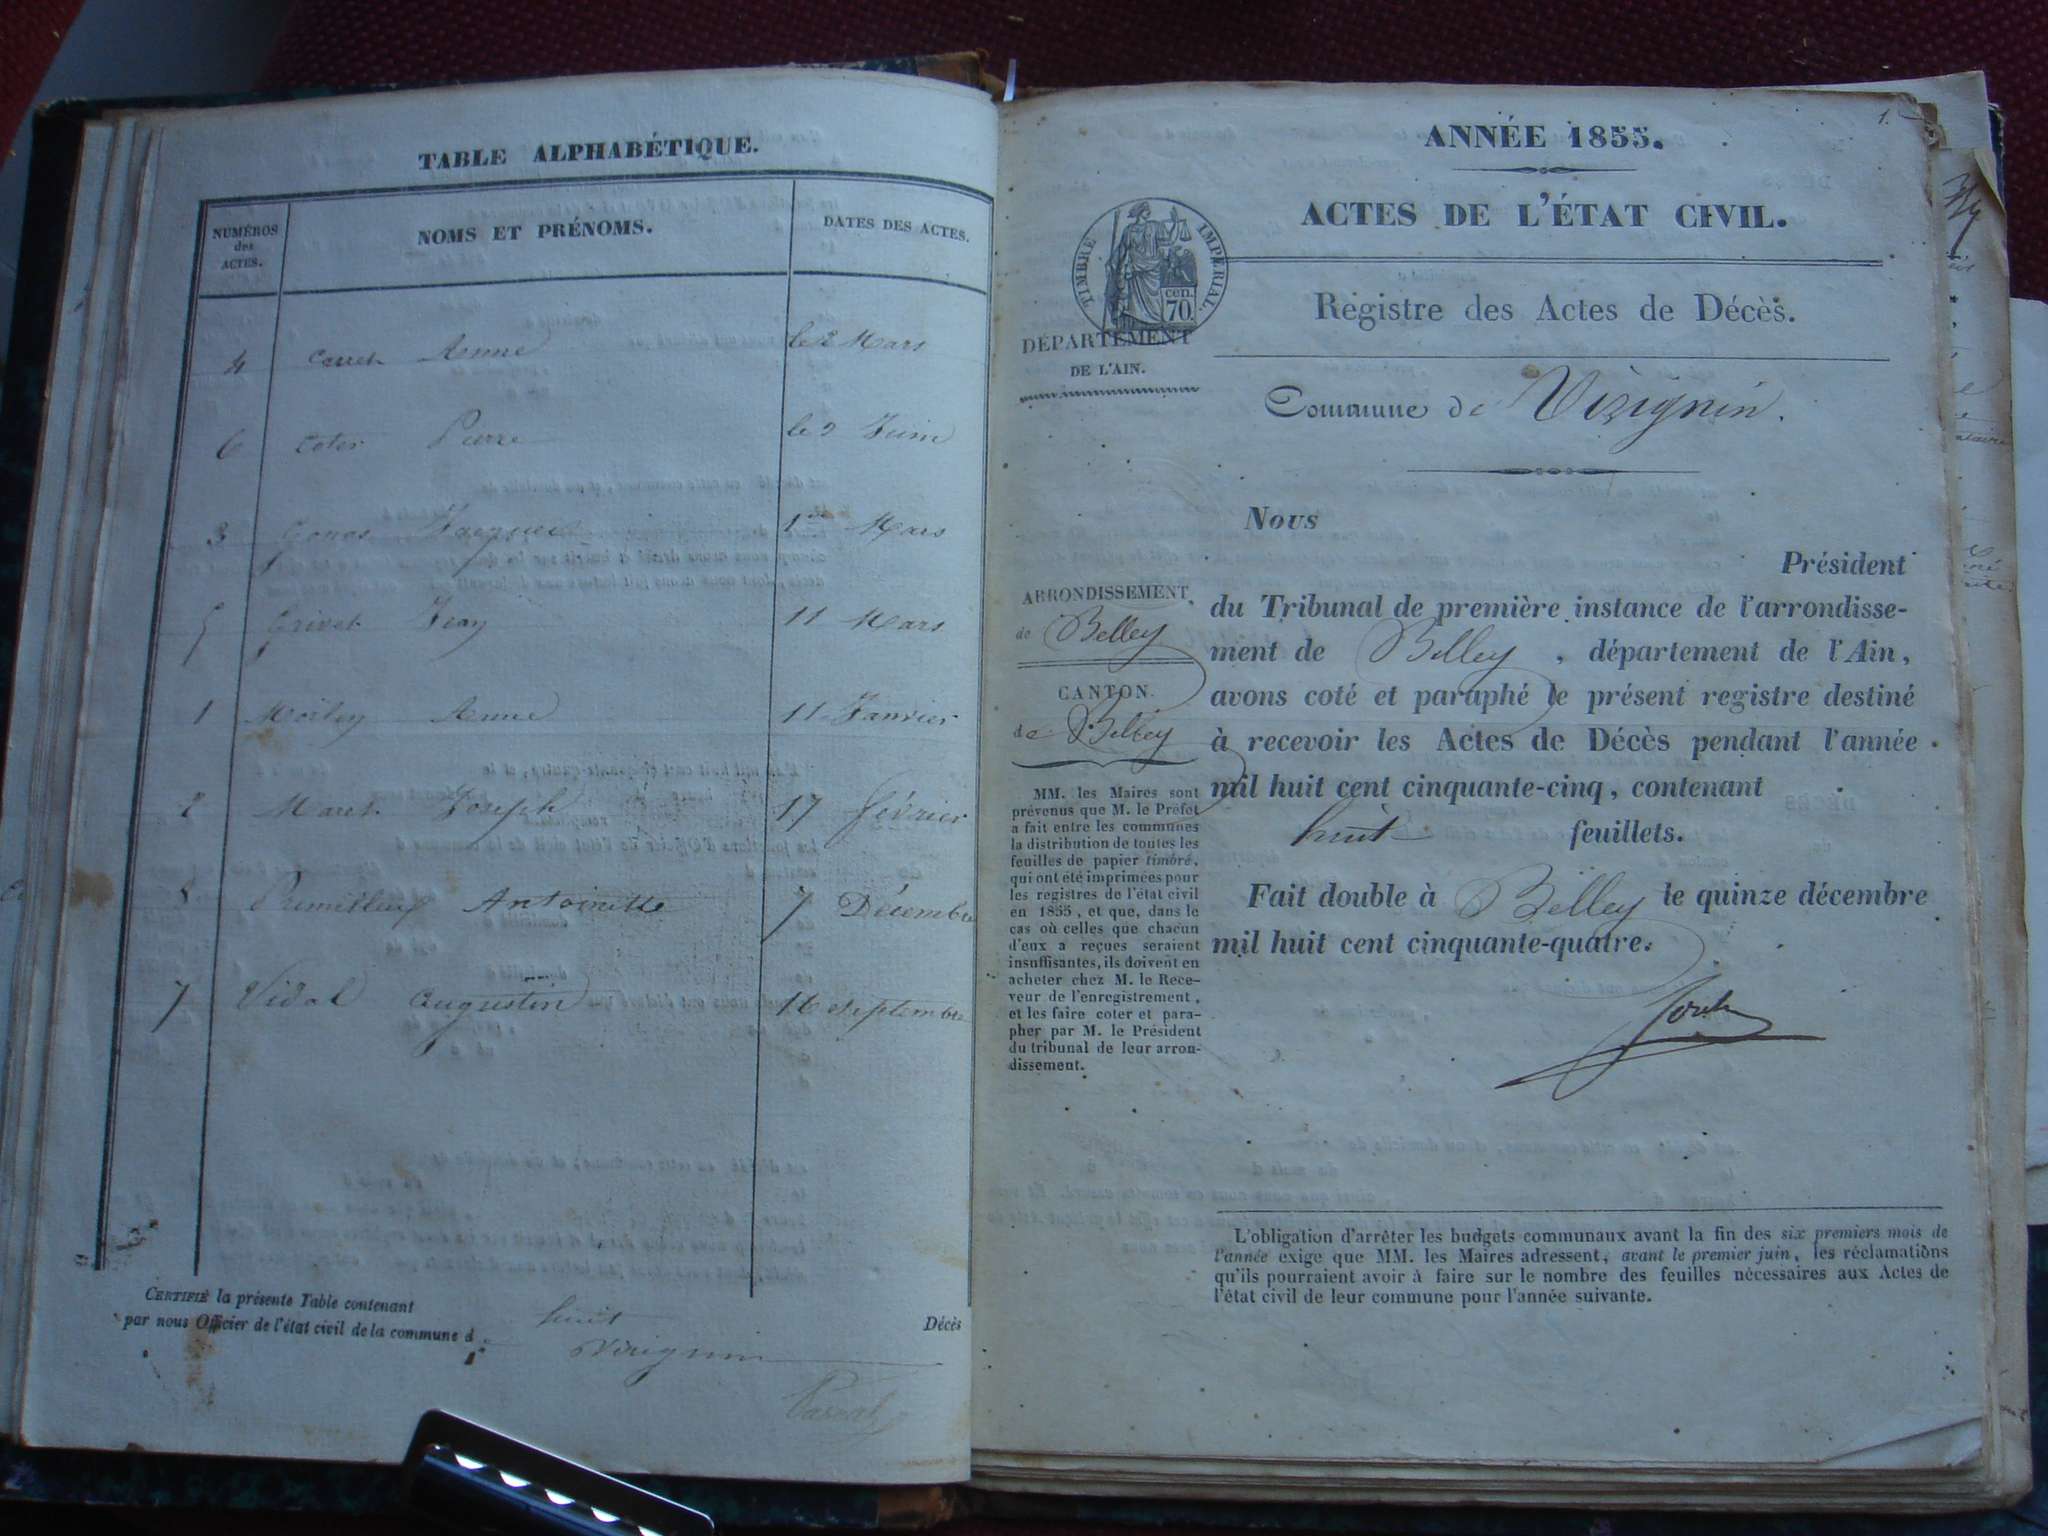 TABLE ALPHABÉTIQUE.
NUMÉROS
des
ACTES.
NOMS ET PRÉNOMS.
DATES DES ACTES.
4 Carret Anne le 2 Mars
6 Coter Pierre le 2 Juin
3 Jacques 1er Mars
5 Grivet Jean 11 Mars
1 Anne 11 Janvier
2 Maret Joseph 17 février
8 Antoinette 7 Décembre
7 Vidal Augustin 16 septembre
CERTIFIÉ la présente Table contenant huit Décès
par nous Officier de l'état civil de la commune d Virignin
1.
ANNÉE 1855.
ACTES DE L'ÉTAT CIVIL.
TIMBRE IMPÉRIAL.
cen.
70.
Registre des Actes de Décès.
DÉPARTEMENT
DE L'AIN.
Commune de Virignin.
ARRONDISSEMENT
de Belley
CANTON
de Belley
MM. les Maires sont
prévenus que M. le Préfet
a fait entre les communes
la distribution de toutes les
feuilles de papier timbré,
qui ont été imprimées pour
les registres de l'état civil
en 1855, et que, dans le
cas où celles que chacun
d'eux a reçues seraient
insuffisantes, ils doivent en
acheter chez M. le Rece-
veur de l'enregistrement,
et les faire coter et para-
pher par M. le Président
du tribunal de leur arron-
dissement.
Nous
Président
du Tribunal de première instance de l'arrondisse-
ment de Belley, département de l'Ain,
avons coté et paraphé le présent registre destiné
à recevoir les Actes de Décès pendant l'année
mil huit cent cinquante-cinq, contenant
huit feuillets.
Fait double à Belley le quinze décembre
mil huit cent cinquante-quatre.
L'obligation d'arrêter les budgets communaux avant la fin des six premiers mois de
l'année exige que MM. les Maires adressent, avant le premier juin, les réclamations
qu'ils pourraient avoir à faire sur le nombre des feuilles nécessaires aux Actes de
l'état civil de leur commune pour l'année suivante.